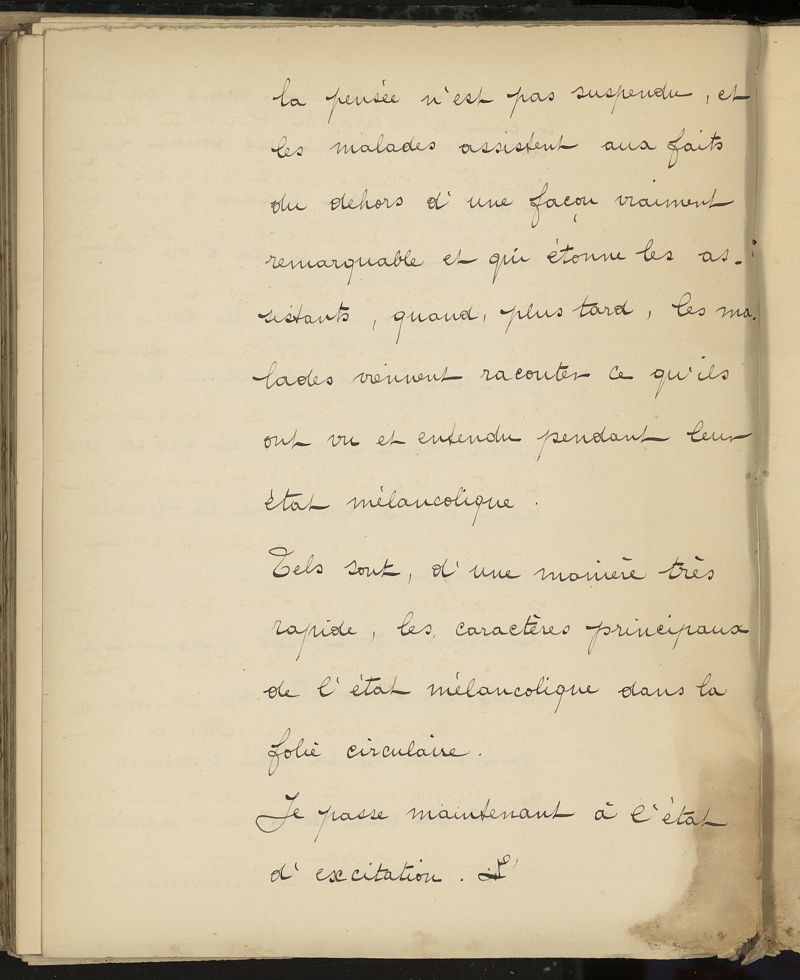 la pensée n'est pas suspendu, et
les malades assistent aux faits
du dehors d'une façon vraiment
remarquable et qui étonne les as-
sistants, quand, plus tard, les ma-
lades viennent raconter ce qu'ils
ont vu et entendu pendant leur
état mélancolique.
Tels sont, d'une manière très
rapide, les caractères principaux
de l'état mélancolique dans la
folie circulaire.
Je passe maintenant à l'état
d'excitation.